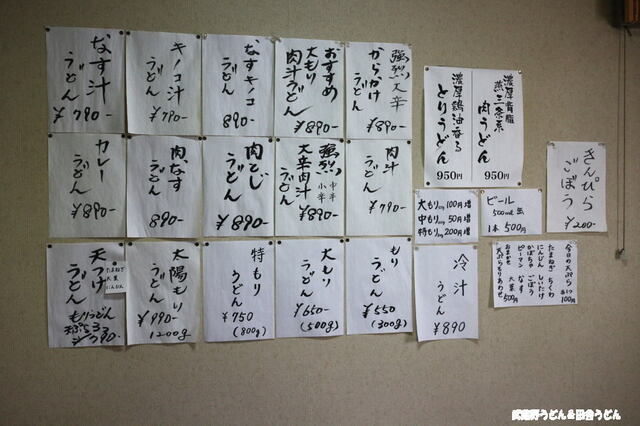 なす汁
うどん
￥790-
キノコ汁
うどん
￥790-
なすキノコ
うどん
890-
おすすめ
大もり
肉汁うどん
￥890-
強烈大辛
からかけ
うどん
￥890-
濃厚背脂
燕三条系
肉うどん
950円
濃厚鶏油香る
とりうどん
950円
カレー
うどん
￥890-
肉なす
うどん
890-
肉とじ
うどん
￥890-
強烈
大辛肉汁
うどん
中辛
小辛
￥890-
肉汁
うどん
￥790-
大もり 100円増
中もり 50円増
特もり 200円増
ビール
500ml缶
1本 500円
きんぴら
ごぼう
￥200-
天つけ
うどん
たまねぎ
大葉
にんじん
もりうどん
太陽もり
うどん
￥990-
1200g
特もり
うどん
￥750
(800g)
大もり
うどん
￥650-
(500g)
もり
うどん
￥550
(300g)
冷汁
うどん
￥890
今日の天ぷら
100円
たまねぎ ちくわ
にんじん しいたけ
かぼちゃ ごぼう
ピーマン なす
おまかせ 大葉
天ぷらもりあわせ
500円
武蔵野うどん＆田舎うどん